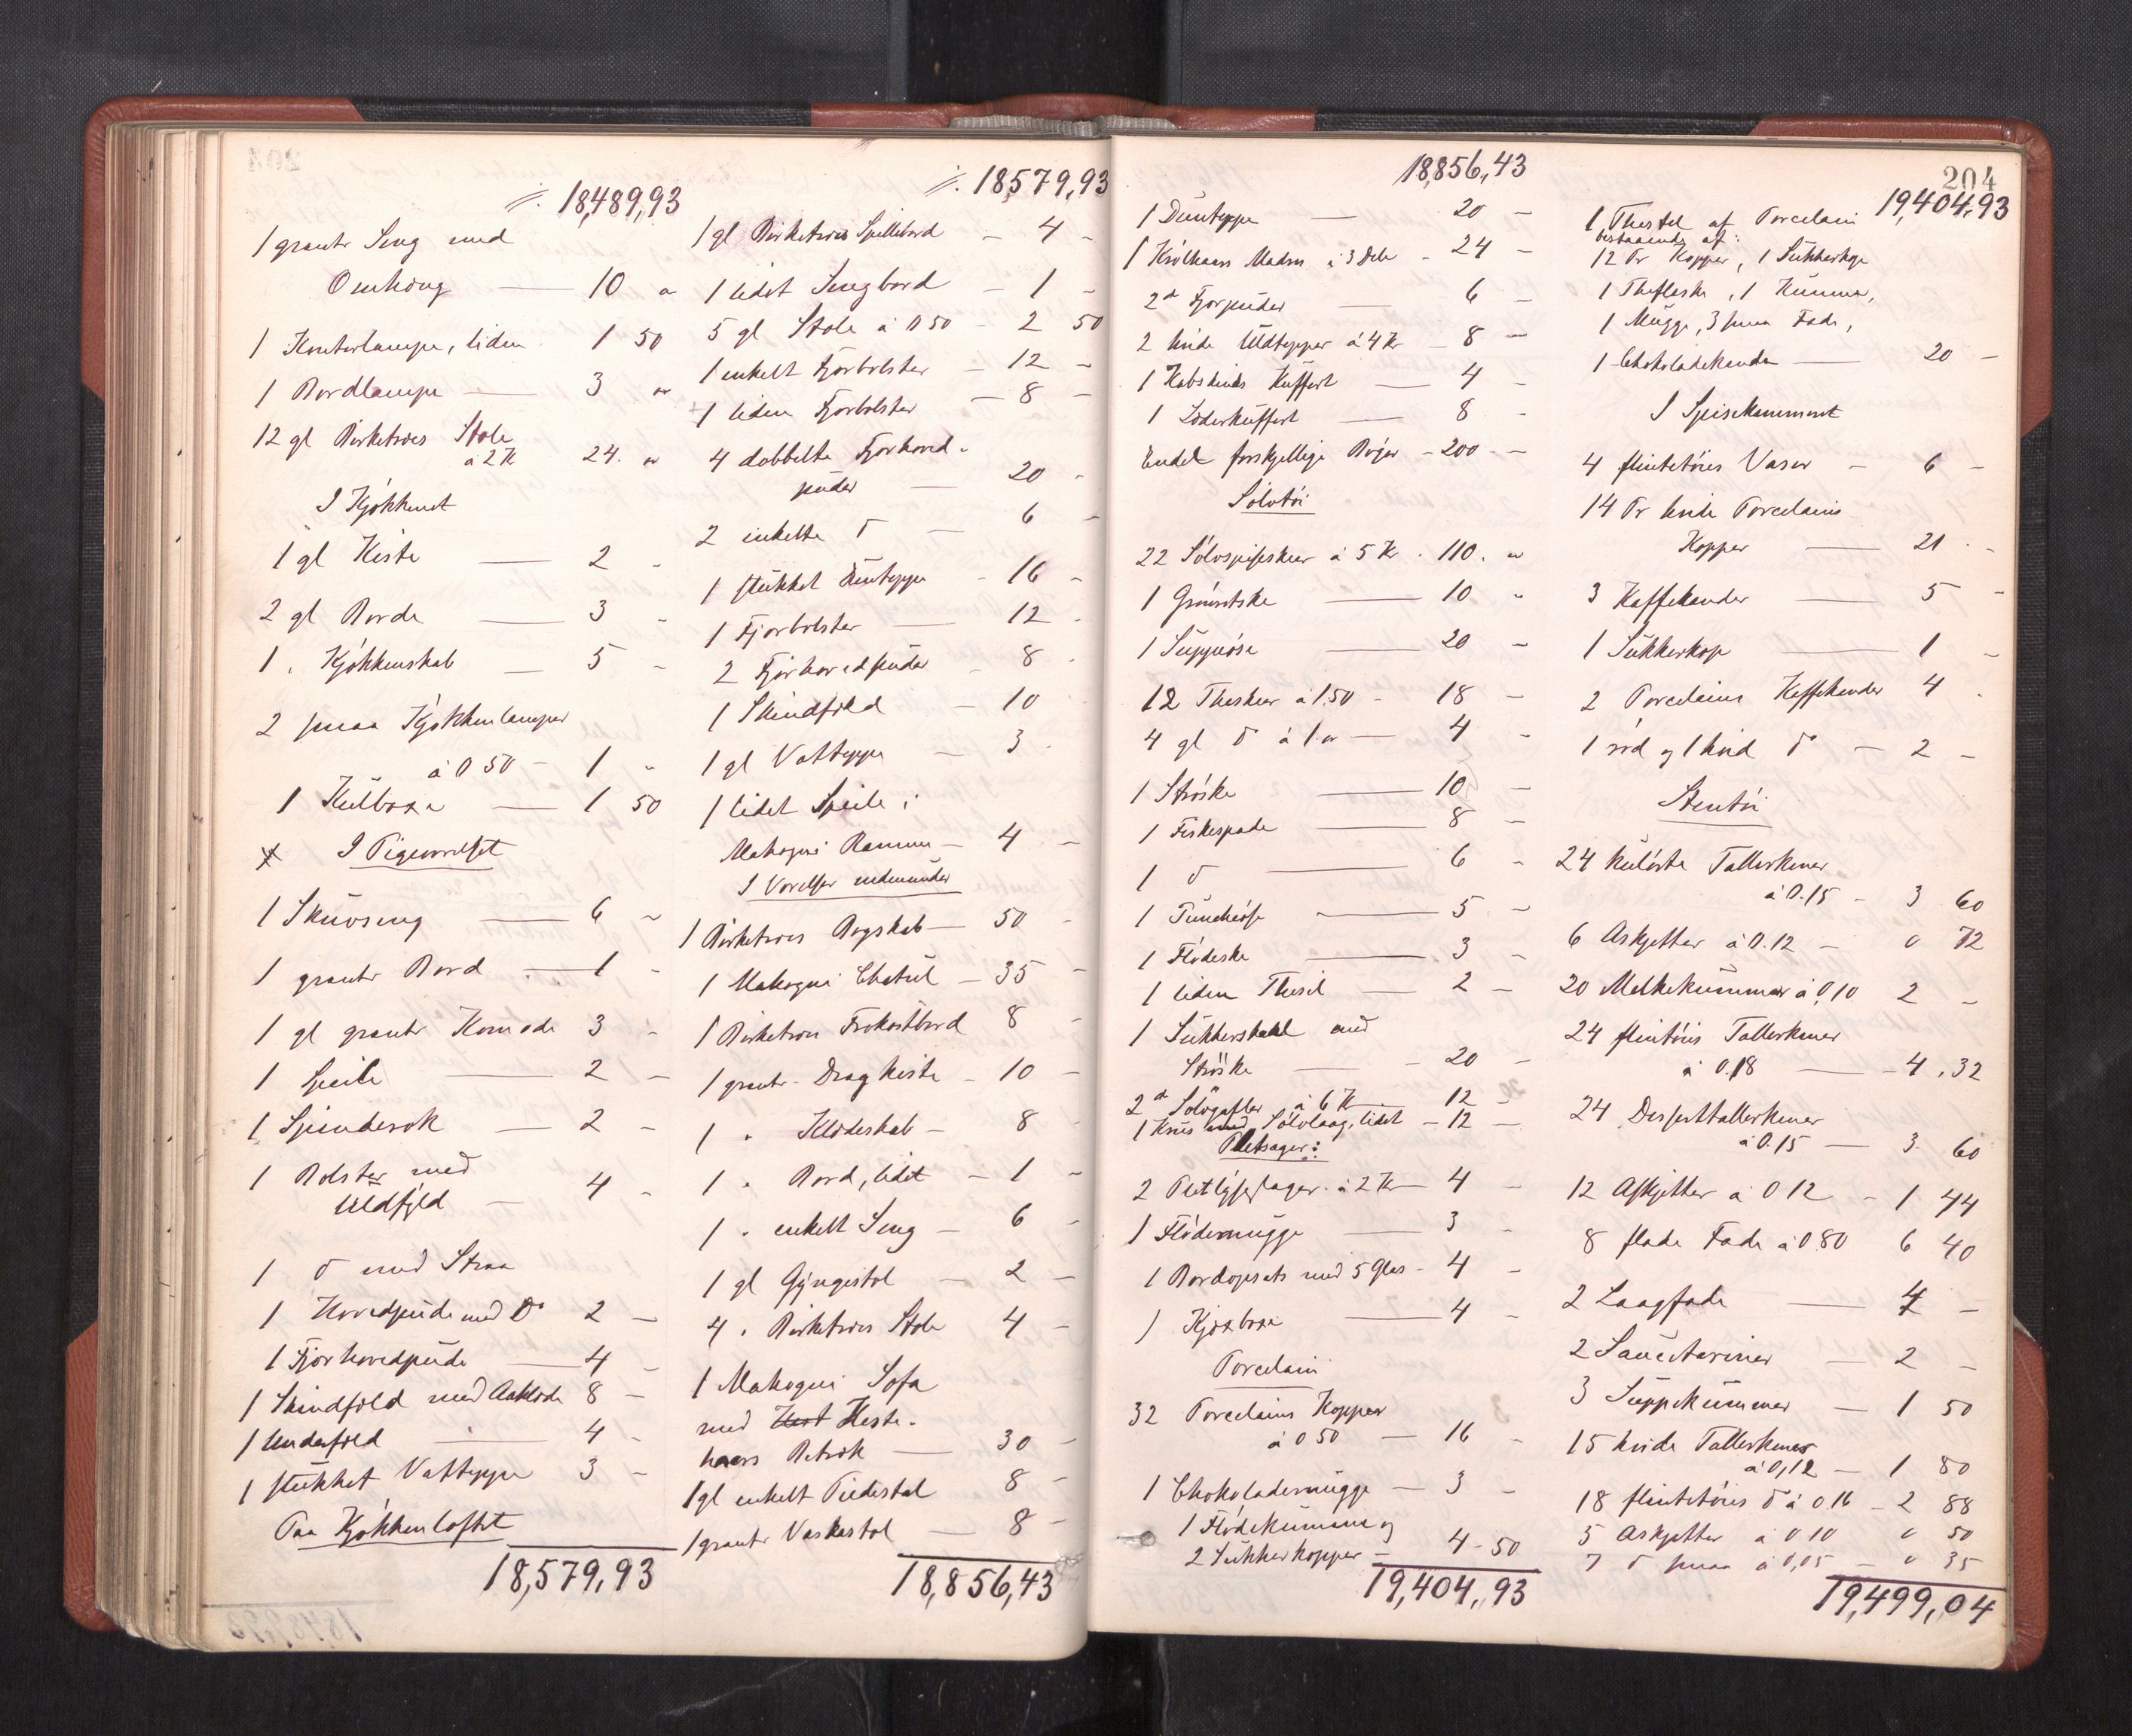 18,489,93
1 grantr Seng med
Omhæng — 10 "
1 Kontorlampe, liden 1 50
1 Bordlampe — 3 "
12 gl Birketræes Stole
à 2 Kr 24. "
I Kjøkkenet
1 gl Kiste — 2 -
2 gl Borde — 3 -
1 " Kjøkkenskab — 5 -
2 smaa Kjøkkenlamper
à 0 50 - 1 "
1 Kulboxe — 1 50
I Pigeværelset
1 Skuvseng — 6 -
1 grantr Bord — 1 -
1 gl grantr Komode 3 -
1 Speile — 2 -
1 Spinderok — 2 -
1 Bolster med
Uldfyld — 4 -
1 do med Straa
1 Hovedpude med Do 2 -
1 Fjørhovedpude — 4 -
1 Skindfæld med Aaklæde 8 -
1 Underfæld — 4 -
1 stukket Vatteppe 3 -
Paa Kjøkkenloftet
18,579,93
18,579,93
1 gl Birketræes Spillebord - 4 -
1 lidet Sengbord - 1 -
5 gl Stole à 0 50 - 2 50
1 enkelt Fjørbolster - 12 -
1 liden Fjørbolster - 8 -
4 dobbelte Fjørhoved-
puder — 20 -
2 enkelte do — 6 -
1 stukket Dunteppe - 16 -
1 Fjørbolster — 12 -
2 Fjørhovedpuder - 8 -
1 Skindfæld - 10
1 gl Vatteppe - 3 -
1 lidet Speile i
Mahogni Ramme - 4 -
I Værelser nedenunder
1 Birketræes Bogskab - 50 -
1 Mahogni Chatul - 35 -
1 Birketræes Frokostbord 8 -
1 grantr Dragkiste - 10 -
1 " Klædeskab - 8 -
1 " Bord, lidet - 1 -
1 " enkelt Seng - 6 -
1 gl Gyngestol - 2 -
4 " Birketræes Stole 4 -
1 Mahogni Sofa
med Heste-
haars Betræk — 30 -
1 gl enkelt Piedestal 8 -
1 grantr Vaskestol — 8 -
18,856,43
18,856,43
1 Dunteppe — 20 -
1 Krølhaars Madras i 3 Dele - 24 -
2 do Fjørpuder — 6 -
2 hvide Uldtepper à 4 Kr - 8 -
1 Kobskinds Kuffert — 4 -
1 Læderkuffert — 8 -
Endel forskjellige Bøger - 200 - -
Sølvtøi
22 Sølvspiseskeer à 5 Kr. 110. "
1 Grønsetske — 10 "
1 Suppeøse — 20 -
12 Theskeer à 1.50 - 18 -
4 gl do à 1. " — 4 -
1 Strøske — 10 -
1 Fiskespade — 8 -
1 do — 6 -
1 Puncheøse — 5 -
1 Flødeske — 3 -
1 liden Thesil — 2 -
1 Sukkerskaal med
Strøske — 20 -
2 do Sølvgafler à 6 Kr 12 -
1 Krus med Sølvlaag, lidet - 12 -
Pletsager:
2 Pletlysestager à 2 Kr - 4 -
1 Flødemugge — 3 -
1 Bordopsats med 5 Glas - 4 -
1 Kjæxboxe — 4 -
Porcelain
32 Porcelains Kopper
à 0 50 — 16 -
1 Chokolademugge - 3 -
1 Flødekumme og
2 Sukkerkopper - 4 - 50
19,404,93
204
19,404,93
1 Thestel af Porcelain
bestaaende af:
12 Pr Kopper, 1 Sukkerkop
1 Theflaske, 1 Kumme,
1 Mugge, 3 smaa Fade,
1 Chokoladekande — 20 -
I Spisekammeret
4 flintetøies Vaser - 6 -
14 Pr hvide Porcelains
Kopper — 21 -
3 Kaffekander — 5 -
1 Sukkerkop — 1 -
2 Porcelains Kaffekander 4 -
1 rød og 1 hvid do - 2 -
Stentøi
24 kulørte Tallerkener
à 0.15 - 3 60
6 Askjetter à 0.12 - 0 72
20 Melkekummer à 0,10 2 -
24 flintøies Tallerkener
à 0.18 — 4,32
24 Desserttallerkener
à 0.15 — 3. 60
12 Askjetter à 0 12 - 1 44
8 flade Fade à 0.80 6 40
2 Laagfade — 4 -
2 Saucetariner — 2 -
3 Suppekummer - 1 50
15 hvide Tallerkener
à 0,12 - 1 80
18 flintetøies do à 0.16 - 2 88
5 Askjetter à 0 10 0 50
7 do smaa à 0,05 - 0 35
19,499,04